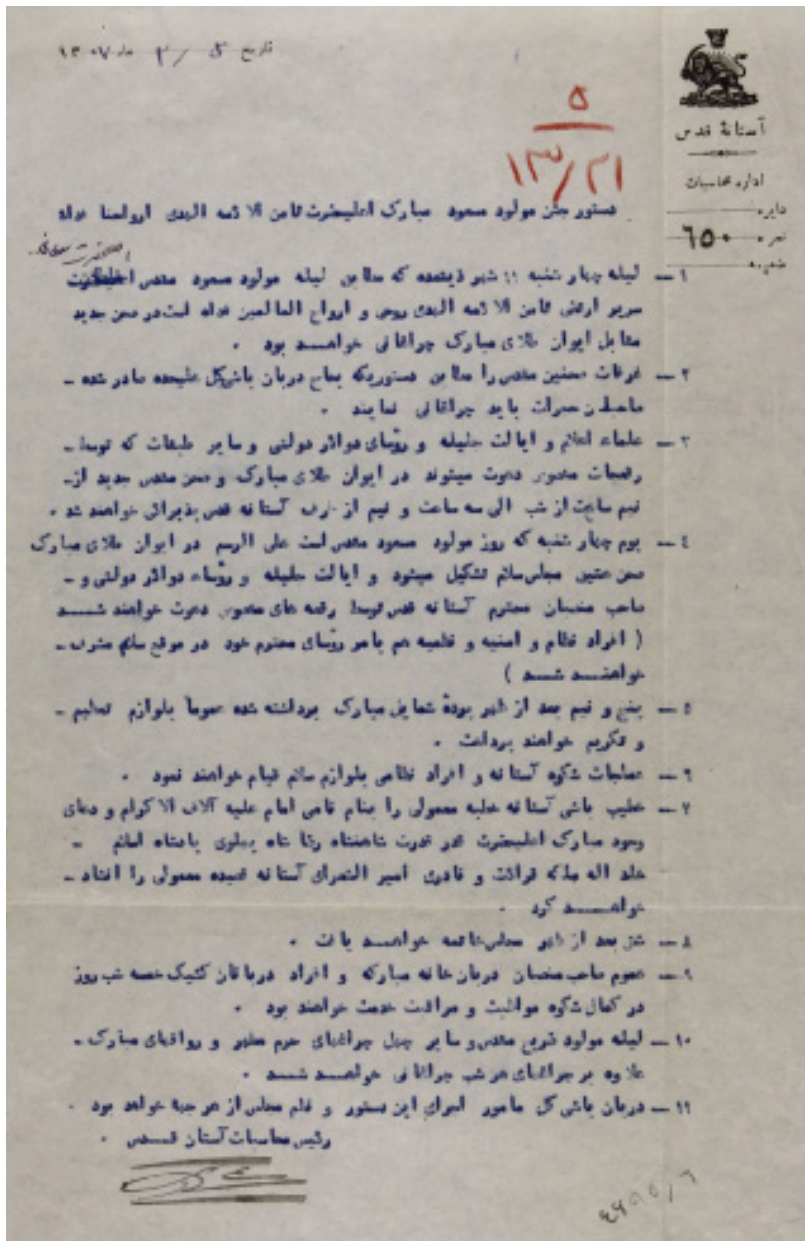 تاریخ ۵ / ۲ ماه ۱۳۰۷
آستانهٔ قدس
اداره محاسبات
دایره
نمره ۶۵۰
ضمیمه
۵
۱۳/۲۱
دستور جشن مولود مسعود مبارک اعلیحضرت ثامن الائمه الهدی ارواحنا فداه
۱ — لیله چهار شنبه ۱۱ شهر ذیقعده که مطابق لیله مولود مسعود مقدس
سریر ارتضی ثامن الائمه الهدی روحی و ارواح العالمین فداه است در صحن جدید
مقابل ایوان طلای مبارک چراغانی خواهد بود .
۲ — غرفات صحنین مقدس را مطابق دستوریکه بحاج دربان باشی کل علیحده صادر شده —
صاحبان حجرات باید چراغانی نمایند .
۳ — علماء اعلام و ایالت جلیله و رؤسای دوائر دولتی و سایر طبقات که توسط —
رقعجات مخصوص دعوت میشوند در ایوان طلای مبارک و صحن مقدس جدید از —
نیم ساعت از شب الی سه ساعت و نیم از طرف آستانه قدس پذیرائی خواهند شد .
۴ — یوم چهار شنبه که روز مولود مسعود مقدس است علی الرسم در ایوان طلای مبارک
صحن عتیق مجلس سلام تشکیل میشود و ایالت جلیله و رؤساء دوائر دولتی و —
صاحب منصبان محترم آستانه قدس توسط رقعه های مخصوص دعوت خواهند شد
( افراد نظام و امنیه و نظمیه هم با رؤسای محترم خود در موقع سلام مشرف —
خواهند شد )
۵ — پنج و نیم بعد از ظهر پردهٔ شمایل مبارک برداشته شده عموماً بلوازم تعظیم —
و تکریم خواهند پرداخت .
۶ — عملجات شکوه آستانه و افراد نظامی بلوازم سلام قیام خواهند نمود .
۷ — خطیب باشی آستانه خطبه معمولی را بنام نامی امام علیه آلاف الاکرام و دعای
وجود مبارک اعلیحضرت قدر قدرت شاهنشاه رضا شاه پهلوی پادشاه اسلام —
خلد اله ملکه قرائت و قادری امیر الشعرای آستانه قصیده معمولی را انشاد —
خواهد کرد .
۸ — شش بعد از ظهر مجلس خاتمه خواهد یافت .
۹ — عموم صاحب منصبان دربان خانه مبارکه و افراد دربانان کشیک خمسه شب روز
در کمال شکوه مواظبت و مراقبت خدمت خواهند بود .
۱۰ — لیله مولود ضریح مقدس و سایر چهل چراغهای حرم مطهر و رواقهای مبارک —
علاوه بر چراغهای هر شب چراغانی خواهد شد .
۱۱ — دربان باشی کل مامور اجرای این دستور و نظم مجلس از هر جهة خواهد بود .
رئیس محاسبات آستان قدس .